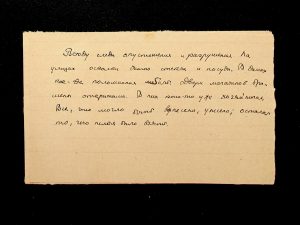 Всюду следы опустошения и разрушения. На
улицах осколки битого стекла и посуды. В
поломанная мебель. Двери магазинов
отперты. В них кто-то уже
Все, что могло быть унесено, унесено; осталось
то, что нельзя было взять.